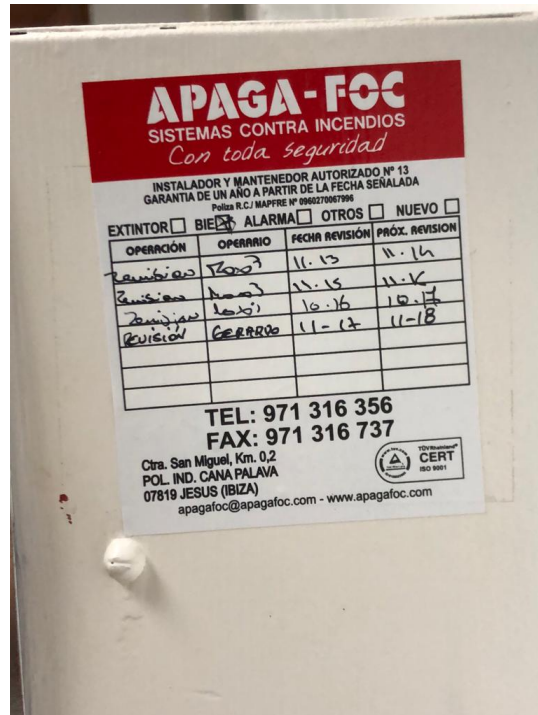 APAGA-FOC
SISTEMAS CONTRA INCENDIOS
Con toda seguridad
INSTALADOR Y MANTENEDOR AUTORIZADO Nº 13
GARANTIA DE UN AÑO A PARTIR DE LA FECHA SEÑALADA
Poliza R.C./ MAPFRE Nº 0960270067996
EXTINTOR BIE ALARMA OTROS NUEVO
OPERACIÓN OPERARIO FECHA REVISIÓN PRÓX. REVISION
Revision 11-13 11-14
Revision 11-15
Revision 10-16 10-17
REVISIÓN GERARDO 11-17 11-18
TEL: 971 316 356
FAX: 971 316 737
Ctra. San Miguel, Km. 0,2
POL. IND. CANA PALAVA
07819 JESUS (IBIZA)
apagafoc@apagafoc.com - www.apagafoc.com
TÜVRheinland
CERT
ISO 9001